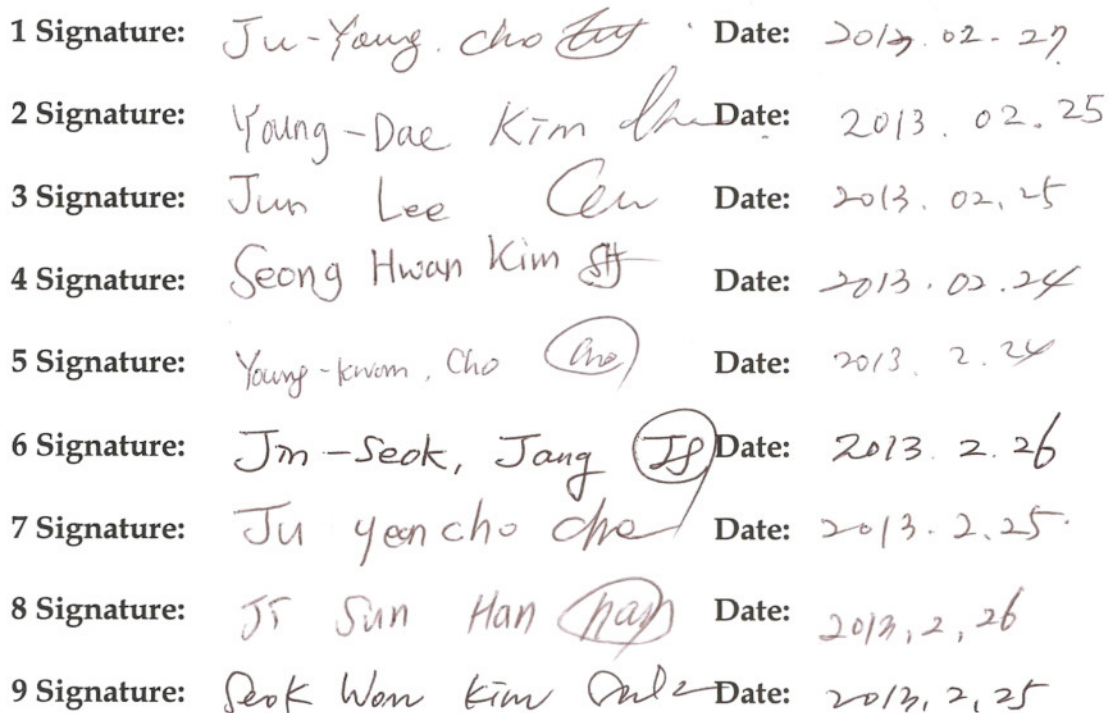 1 Signature: Ju-Young. cho Date: 2013.02-27
2 Signature: Young-Dae Kim Date: 2013.02.25
3 Signature: Jun Lee Date: 2013.02.25
4 Signature: Seong Hwan Kim SH Date: 2013.02.24
5 Signature: Young-kwom, Cho Cho Date: 2013.2.24
6 Signature: Jin-Seok, Jang JS Date: 2013.2.26
7 Signature: Ju yeon cho cho Date: 2013.2.25.
8 Signature: Ji Sun Han han Date: 2013,2,26
9 Signature: Seok Won Kim Date: 2013,2,25